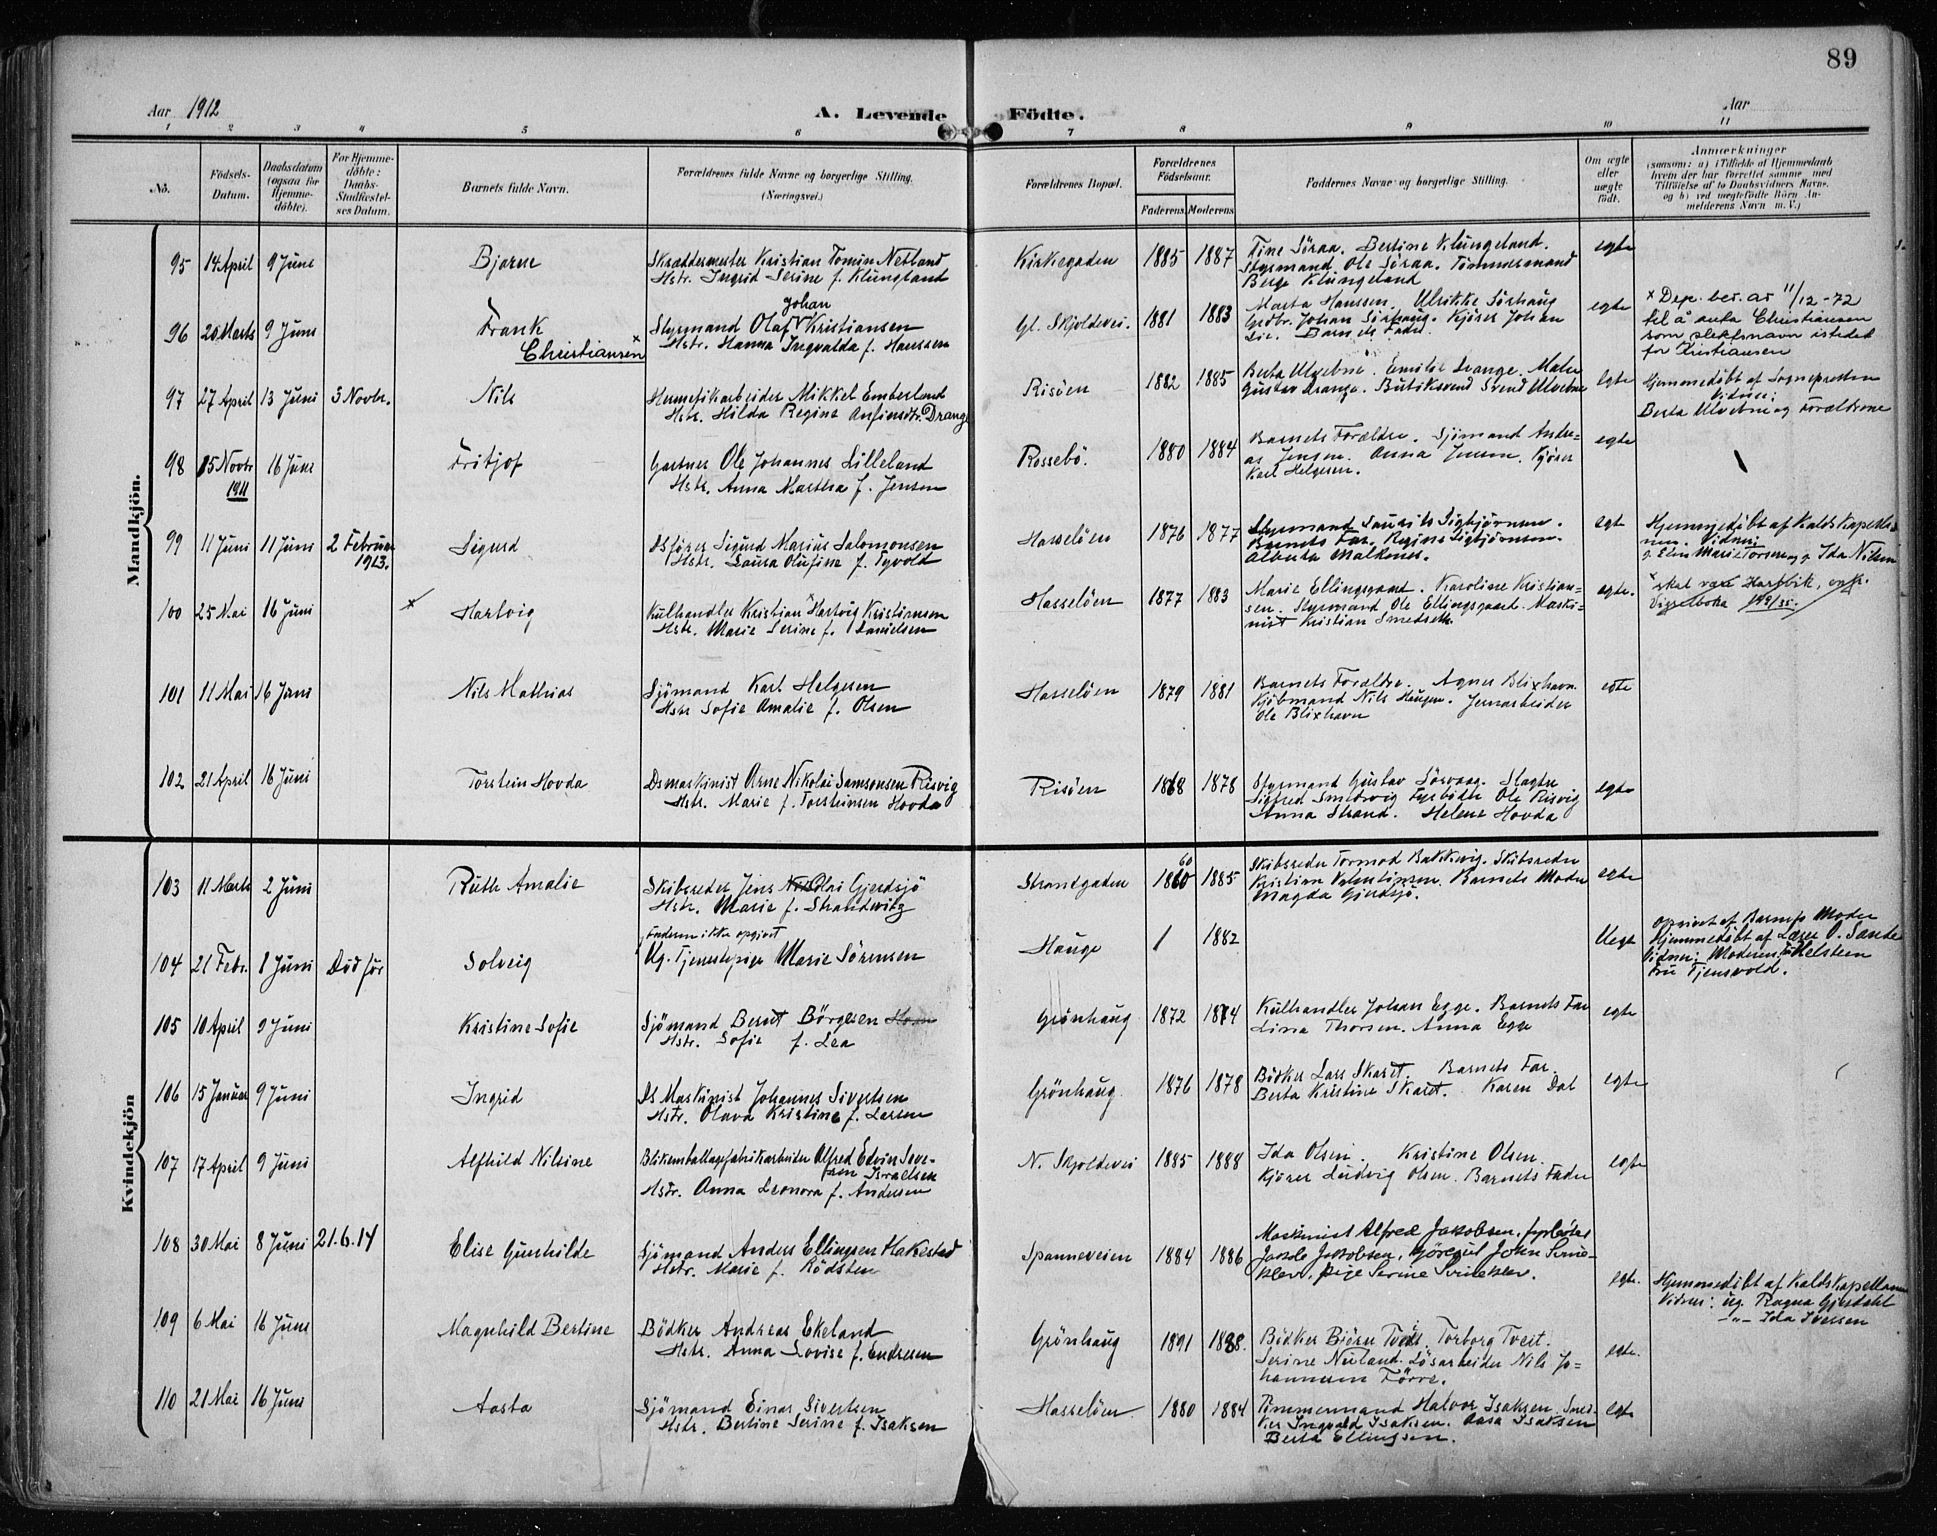 89
Aar 1912
A. Levende Fødte.
Aar
1 2 3 4 5 6 7 8 9 10 11
No.
Födsels-
Datum.
Daabsdatum
(ogsaa for
Hjemme-
døbte).
For Hjemme-
døbte:
Daabs-
Stadfæstel-
ses Datum.
Barnets fulde Navn.
Forældrenes fulde Navne og borgerlige Stilling.
(Næringsvei.)
Forældrenes Bopæl.
Forældrenes
Födselsaar.
Faderens. Moderens.
Faddernes Navne og borgerlige Stilling.
Om ægte
eller
uægte
født.
Anmærkninger
(saasom: a) i Tilfælde af Hjemmedaab
hvem der har forrettet samme med
Tilføielse af to Daabsvidners Navne.
og b) ved uægtefødte Börn An-
melderens Navn m. V.)
Mandkjön.
95 14 April 9 Juni
Bjarne
Skræddermester Kristian Tomin Netland
Hstr. Ingrid Serine f. Klungland
Kirkegaden 1885 1887
Tine Søraa. Bertine Klungeland.
Styrmand Ole Søraa. Tømmermand
Berge Klungeland
egte
96 20 Marts 9 Juni
Frank
Christiansen x
Johan
Styrmand Olaf Kristiansen
Hstr. Hanna Ingvalda f. Hanssen
Gl. Skjoldevei. 1881 1883
Marta Hanssen. Ulrikke Sørhaug
Grdbr. Johan Sørhaug. Kjører Johan
Lie. Barnets Fader
egte
x Dep. bev. av 11/12-72
til å anta Christiansen
som slektsnavn istedet
for Kristiansen
97 27 April 13 Juni 3 Novbr.
Nils
Hermetikarbeider Mikkel Emberland
Hstr. Hilda Regine Anfinsdtr. Drange
Risøen 1882 1885
Berta Ulvebne. Emilie Drange. Maler
Gustav Drange. Butiksvend Svend Ulvebne
egte
Hjemmedøbt af Sognepresten
Vidner:
Berta Ulvebne og Forældrene
98 15 Novbr 1911 16 Juni
Fritjof
Gartner Ole Johannes Lilleland
Hstr. Anna Martha f. Jensen
Rossebø. 1880 1884
Barnets Forældre. Sjømand Andre-
as Jensen. Anna Jensen. Kjører
Karl Helgesen.
egte
99 11 Juni 11 Juni 2 Februar 1913.
Sigurd
Dsfører Sigurd Marius Salomonsen
Hstr. Laura Olufine f. Tyvold
Hasseløen 1876 1877
Styrmand Laurits Sigbjørnsen.
Barnets Far. Regine Sigbjørnsen.
Alberta Malknes.
egt
Hjemmedøbt af Kalds Kapella-
nen. Vidner:
g. Elen Marie Torsen og g. Ida Nilsen
100 25 Mai 16 Juni
x Hartvig
Kulhandler Kristian Hartvig Kristensen
Hstr. Marie Serine f. Danielsen
Hasseløen 1877 1883
Marie Ellingsgaard. Karoline Kristian-
sen. Styrmand Ole Ellingsgaard. Maski-
nist Kristian Smedsvik
egte.
101 11 Mai 16 Juni
Nils Mathias
Sjømand Karl Helgesen
Hstr Sofie Amalie f. Olsen
Hasseløen 1879 1881
Barnets Forældre. Agnes Blixhavn.
Kjøbmand Nils Haugen. Jernarbeider
Ole Blixhavn
egte
102 21 April 16 Juni
Torstein Hovda
Dsmaskinist Arne Nikolai Samsonsen Risvig
Hstr. Marie f. Torsteinsen Hovda
Risøen 1868 1878
Styrmand Gustav Sørvaag. Slagter
Sigfred Smedsvig Fyrbøder Ole Risvig
Anna Strand. Helene Hovda
egte
Kvindekjön
103 11 Marts 2 Juni
Ruth Amalie
Skibsreder Jens Nikolai Gjerdsjø
Hstr. Marie f. Strandvitz
Strandgaden 60 1860 1885
Skibsreder Tormod Bakkevig. Skibsreder
Kristian Valentinsen. Barnets Moder
Magda Gjerdsjø.
egte
104 21 Febr. 8 Juni Død før
Solveig
Faderen ikke opgivet
Ug. Tjenestepige Marie Sørensen
Hauge 1882
Uegt
opgivet af Barnets Moder
Hjemmedøbt af Læser O. Sande
Vidner: Moderen Helsteen
Fru Tjensvold.
105 10 April 9 Juni
Kristine Sofie
Sjømand Bernt Børgesen
Hstr. Sofie f. Lea
Grønhaug 1872 1874
Kulhandler Johan Egge. Barnets Far
Lina Thorsen. Anna Egge
egte
106 15 Januar 9 Juni
Ingrid
Ds Maskinist Johannes Sivertsen
Hstr. Olava Kristine f. Larsen
Grønhaug. 1876 1878
Bødker Lars Skaret. Barnets Far.
Berta Kristine Skaret. Karen Dal
egte
107 17 April 9 Juni
Alfhild Nilsine
Blikemballagefabrikarbeider Alfred Edvin Seve-
rin Israelsen
Hstr. Anna Leonora f. Andersen
N. Skjoldevei 1885 1888
Ida Olsen. Kristine Olsen.
Kjører Ludvig Olsen. Barnets Fader
egte
108 30 Mai 8 Juni 21.6.14
Elise Gunhilde
Sjømand Anders Ellingsen Hakestad
Hstr. Marie f. Rødsten
Spanneveien 1884 1886
Maskinist Alfred Jakobsen, fyrbøter
Jakob Jakobsen, kjøregut John Svine-
klev, pige Serine Svineklev.
egte.
Hjemmedøbt af Kalds Kapellanen
Vidner: ug. Ragna Gjerdahl
-"- Ida Iversen
109 6 Mai 16 Juni
Magnhild Bertine
Bødker Andreas Ekeland
Hstr. Anna Lovise f. Endresen
Grønhaug 1891 1888.
Bødker Bjørn Tveit. Torborg Tveit.
Serine Nuland. Løsarbeider Nils Jo-
hannesen Førre.
egte.
110 21 Mai 16 Juni
Aasta
Sjømand Einar Sivertsen
Hstr. Bertine Serine f. Isaksen
Hasseløen. 1880 1884
Tømmermand Halvor Isaksen. Sned-
ker Ingvald Isaksen. Aasa Isaksen
Berta Ellingsen.
egte